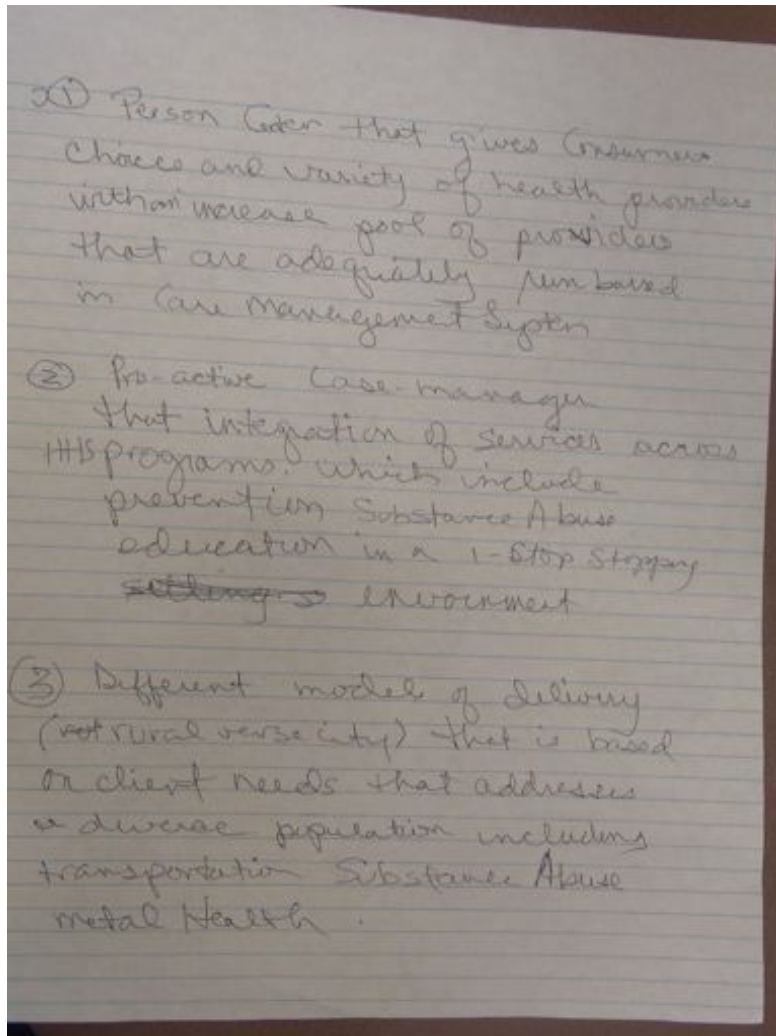 ① Person Center that gives Consumers
Choice and variety of health providers
with an increase pool of providers
that are adequately based
in Care Management System
② Pro-active Case-manager
that integration of services across
HHS programs. which include
prevention Substance Abuse
education in a 1-Stop Stopping
envornment
③ Different models of delivery
(rural verse city) that is based
on client needs that addresses
a diverse population including
transportation Substance Abuse
metal Health.